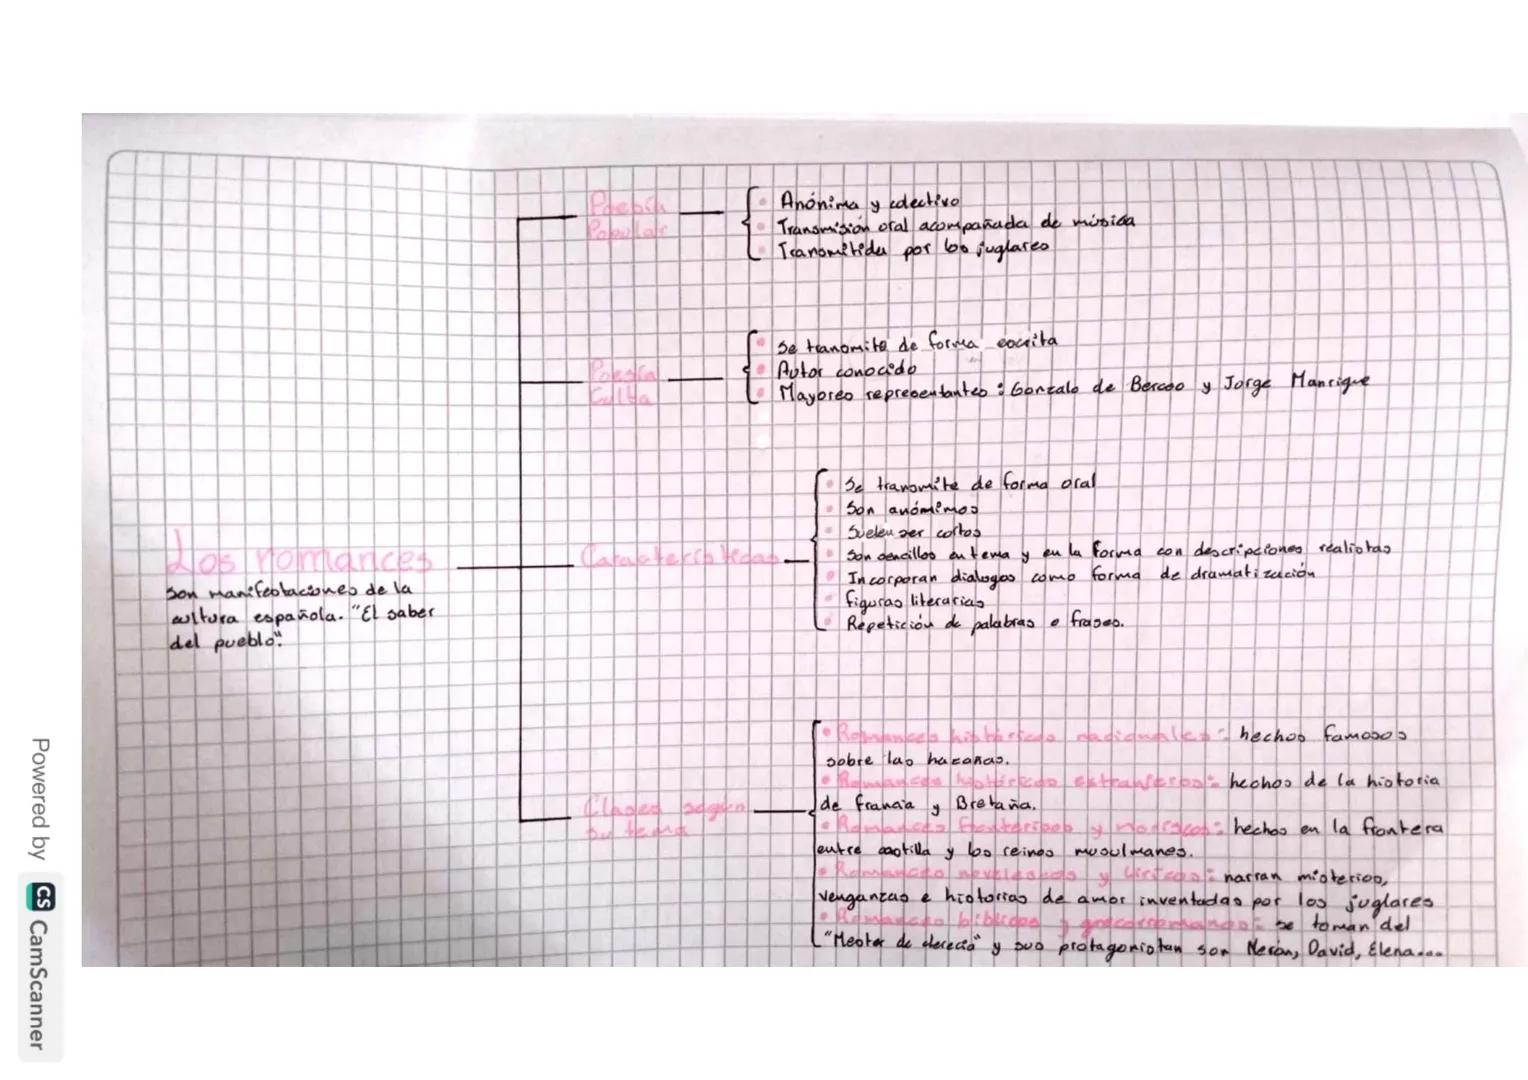 Poesía
Popular
Anónima y colectivo
Transmisión oral acompañada de música
Transmitida por los juglares
Poesía
Culta
Se transmite de forma escrita
Autor conocido
Mayores representantes: Gonzalo de Berceo y Jorge Manrique
Los romances
Son manifestaciones de la
cultura española. "El saber
del pueblo".
Características
Se transmite de forma oral
Son anónimos
Suelen ser cortos
Son sencillos en tema y en la forma con descripciones realistas
Incorporan dialogos como forma de dramatización
figuras literarias
Repetición de palabras o frases.
Clases según
su tema
Romances históricos nacionales: hechos famosos
sobre las hazañas.
Romances históricos extranjeros: hechos de la historia
de francia y Bretaña.
Romances fronterizos y moriscos: hechos en la frontera
entre castilla y los reinos musulmanes.
Romances novelescos y líricos: narran misterios,
venganzas e historias de amor inventadas por los juglares
Romances bíblicos y grecorromanos: se toman del
"Mester de clerecía" y sus protagonistan son Nerón, David, Elena...
Powered by CS CamScanner